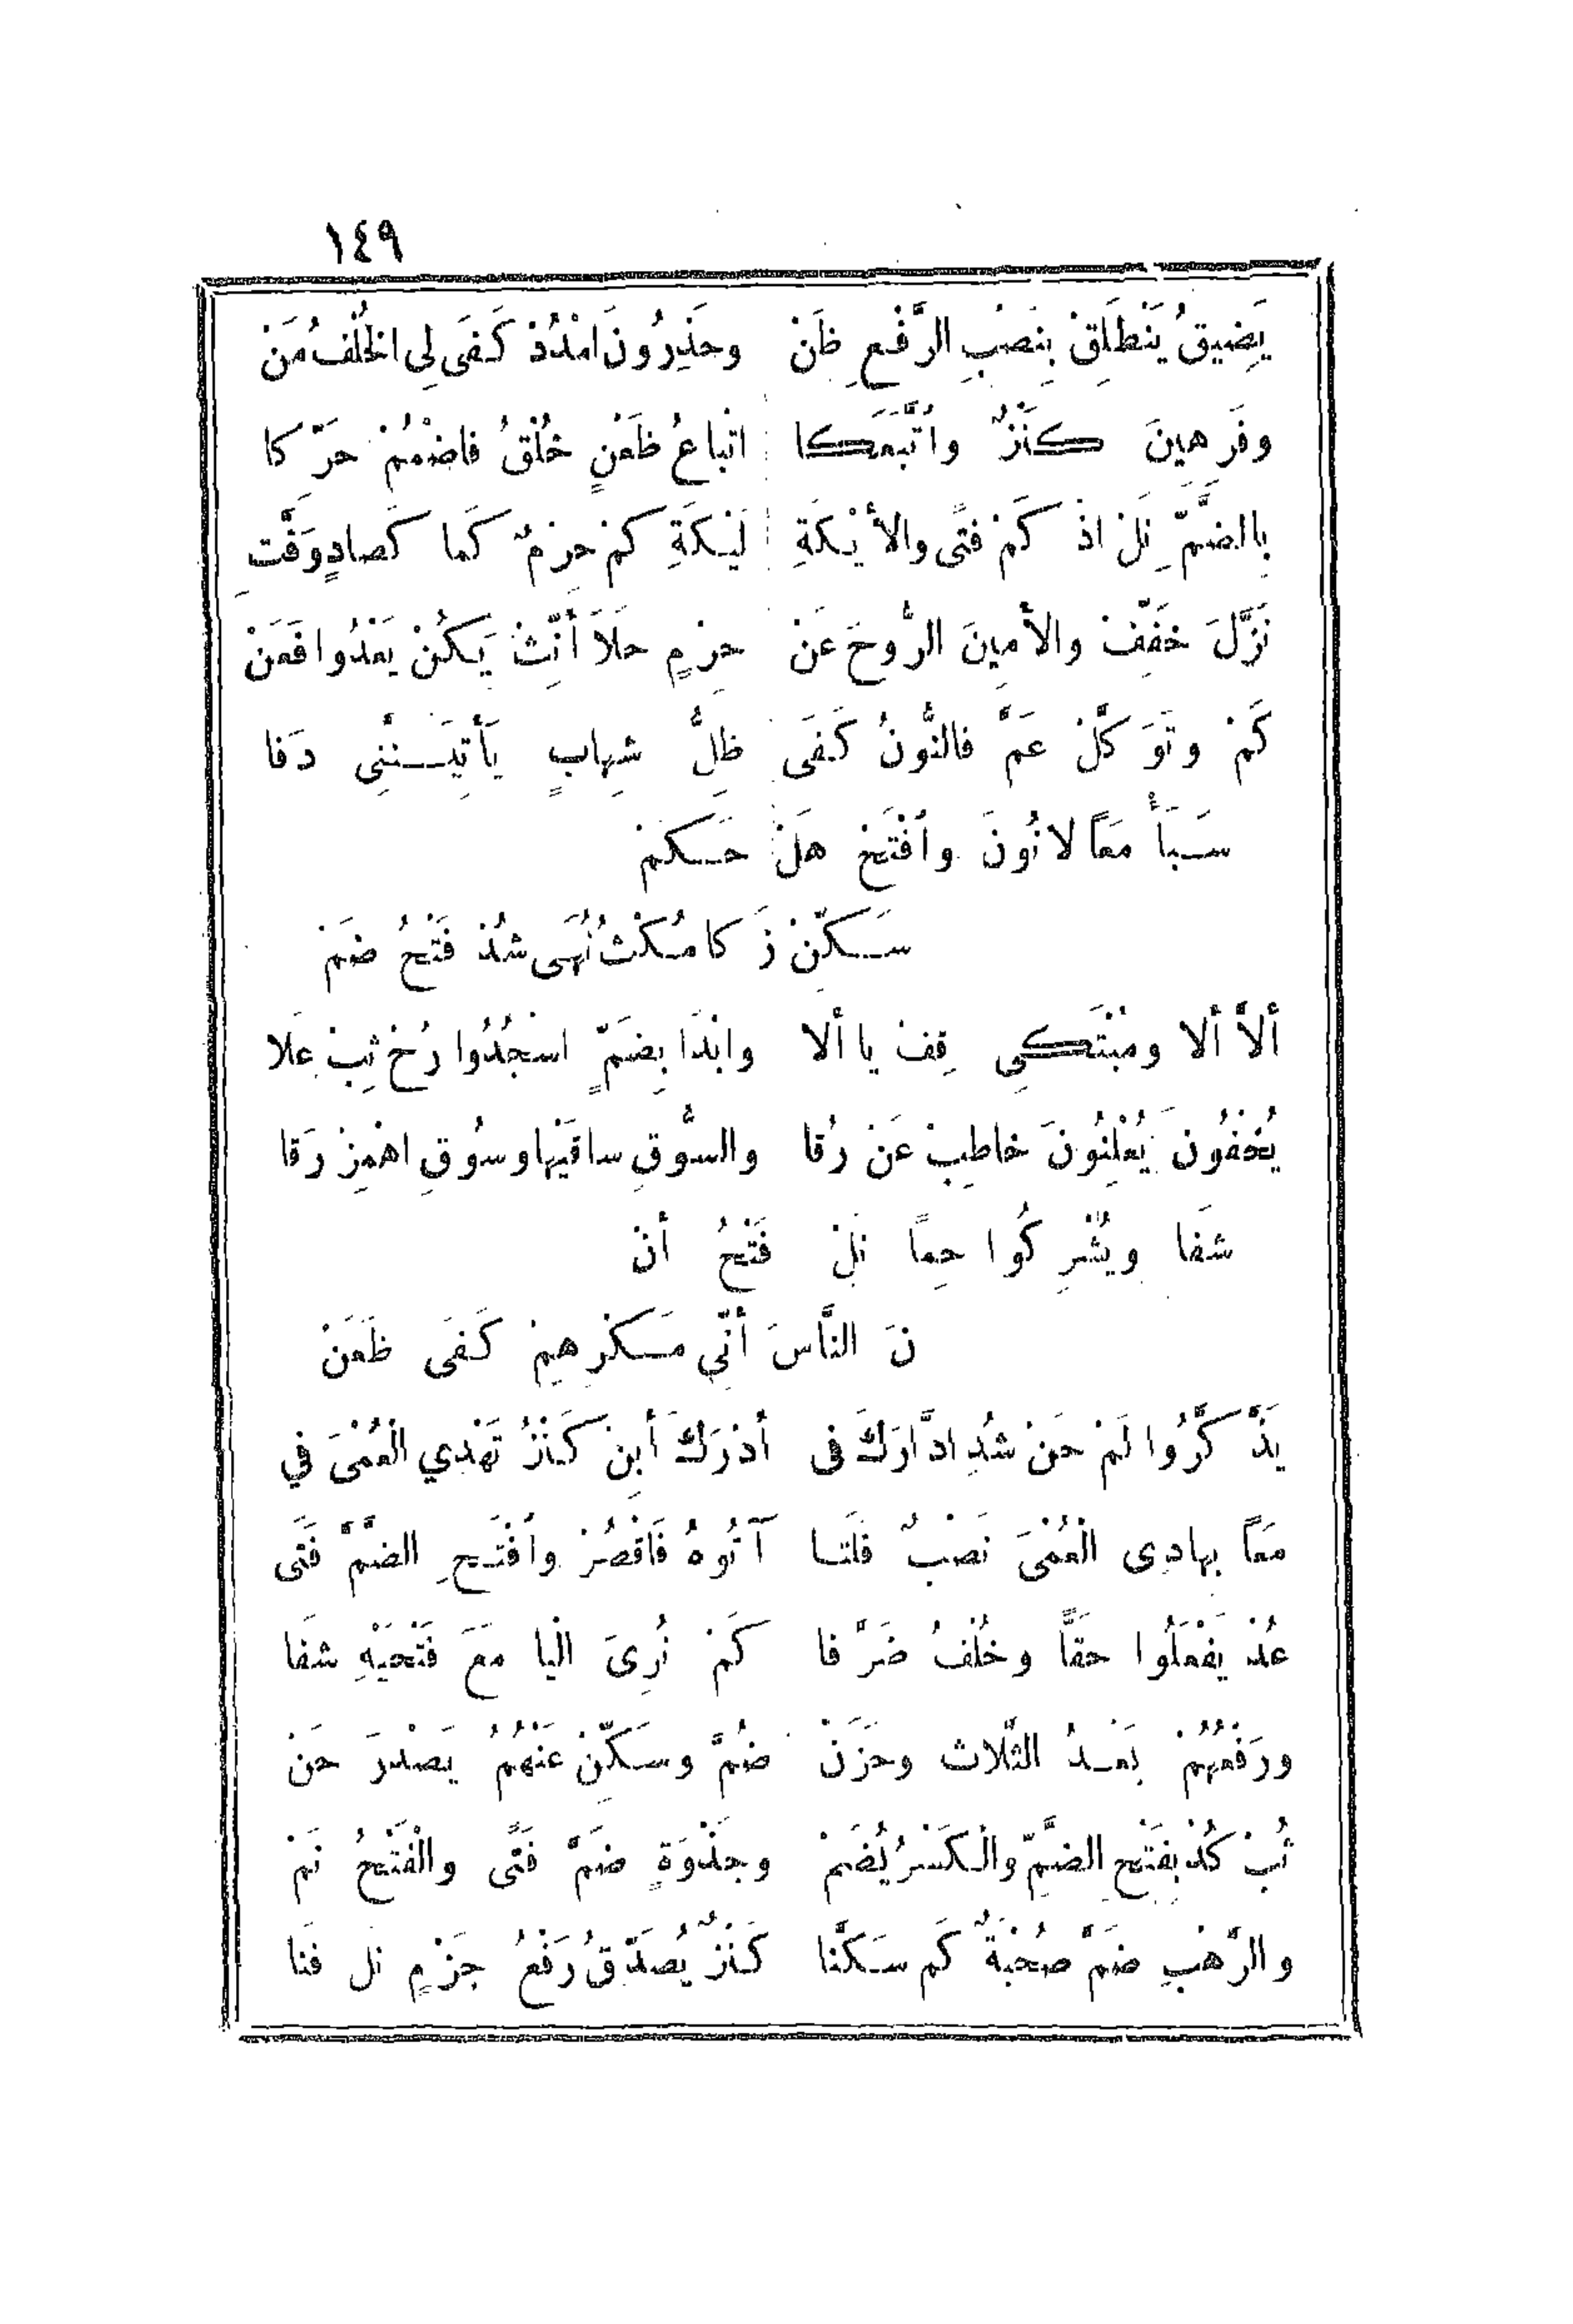 ١٤٩
يَضِيقُ يَنْطَلِقْ بِنَصْبِ الرَّفْعِ ظَنْ وحَذِرُونَ امْدُدْ كَفَى لِى الخُلْفُ مَنْ
وفَرِهِينَ كَنْزٌ واتَّبَعَكَا اتْباعُ ظَعْنٍ خُلْقُ فاضْمُمْ حَرّ كا
بِالضَّمِّ نَلْ اذْ كَمْ فتًى والأَيْكَةِ لَيْكَةِ كمْ حِرْمٌ كَما كَصادٍ وَقَّتِ
نَزَّلَ خَفِّفْ والأمِينَ الرُّوحَ عَنْ حِرْمٍ حَلاَ أنِّثْ يَكُنْ بَعْدُ وافَعَنْ
كَمْ وتَوَ كَّلْ عَمَّ فالنُّونُ كَفَى ظِلُّ شِهابٍ يَأْتِيَنَّنِى دَفا
سَبَأَ مَعاً لا نُونَ وافْتَحْ هَلْ حَكَمْ
سَكِّنْ زَ كا مُكْثُ نُهَى شُدْ فَتْحُ ضَمْ
ألاّ ألا ومُبْتَكِى قِفْ يا ألا وابْدَا بِضَمٍّ اسْجُدُوا رُحْ ثِبْ غَلا
يُخْفُونَ يُعْلِنُونَ خاطِبْ عَنْ رُقا والسُّوقِ ساقَيْها وسُوقِ اهْمِزْ زَقا
شَفا ويُشْرِ كُوا حِماً نَلْ فَتْحُ أنْ
نَ النَّاسَ أنِّي مَكْرِهِمْ كَفَى ظَعَنْ
يَذَّ كَّرُوا لَمْ حَنْ شُدِ ادَّارَكَ فى أدْرَكَ أبِنْ كَنْزٌ تَهْدِي الْعُمْىَ في
مَعاً بِهادِى الْعُمْىَ نَصْبٌ فَلَتا آتُوهُ فَاقْصُرْ وافْتَحِ الضَّمَّ فَتَى
عُدْ يَفْعَلُوا حقًّا وخُلْفُ صَرَّ فا كَمْ نُرِىَ اليا مَعَ فَتْحَيْهِ شَفا
ورَفْعُهُمْ بَعْدُ الثَّلاث وحَزَنْ ضُمَّ وسَكِّنْ عَنْهُمُ يَصْدُرَ حَنْ
ثُبْ كُدْ بِفَتْحِ الضَّمِّ والْكَسْرُ يُضَمْ وجَذْوَةٍ ضَمَّ فَتَى والْفَتْحُ نَمْ
والرَّهْبِ ضَمَّ صُحْبَةٌ كَم سَكَّنا كَنْزٌ يُصَدِّقُ رَفْعُ جَزْمٍ نل فنَا